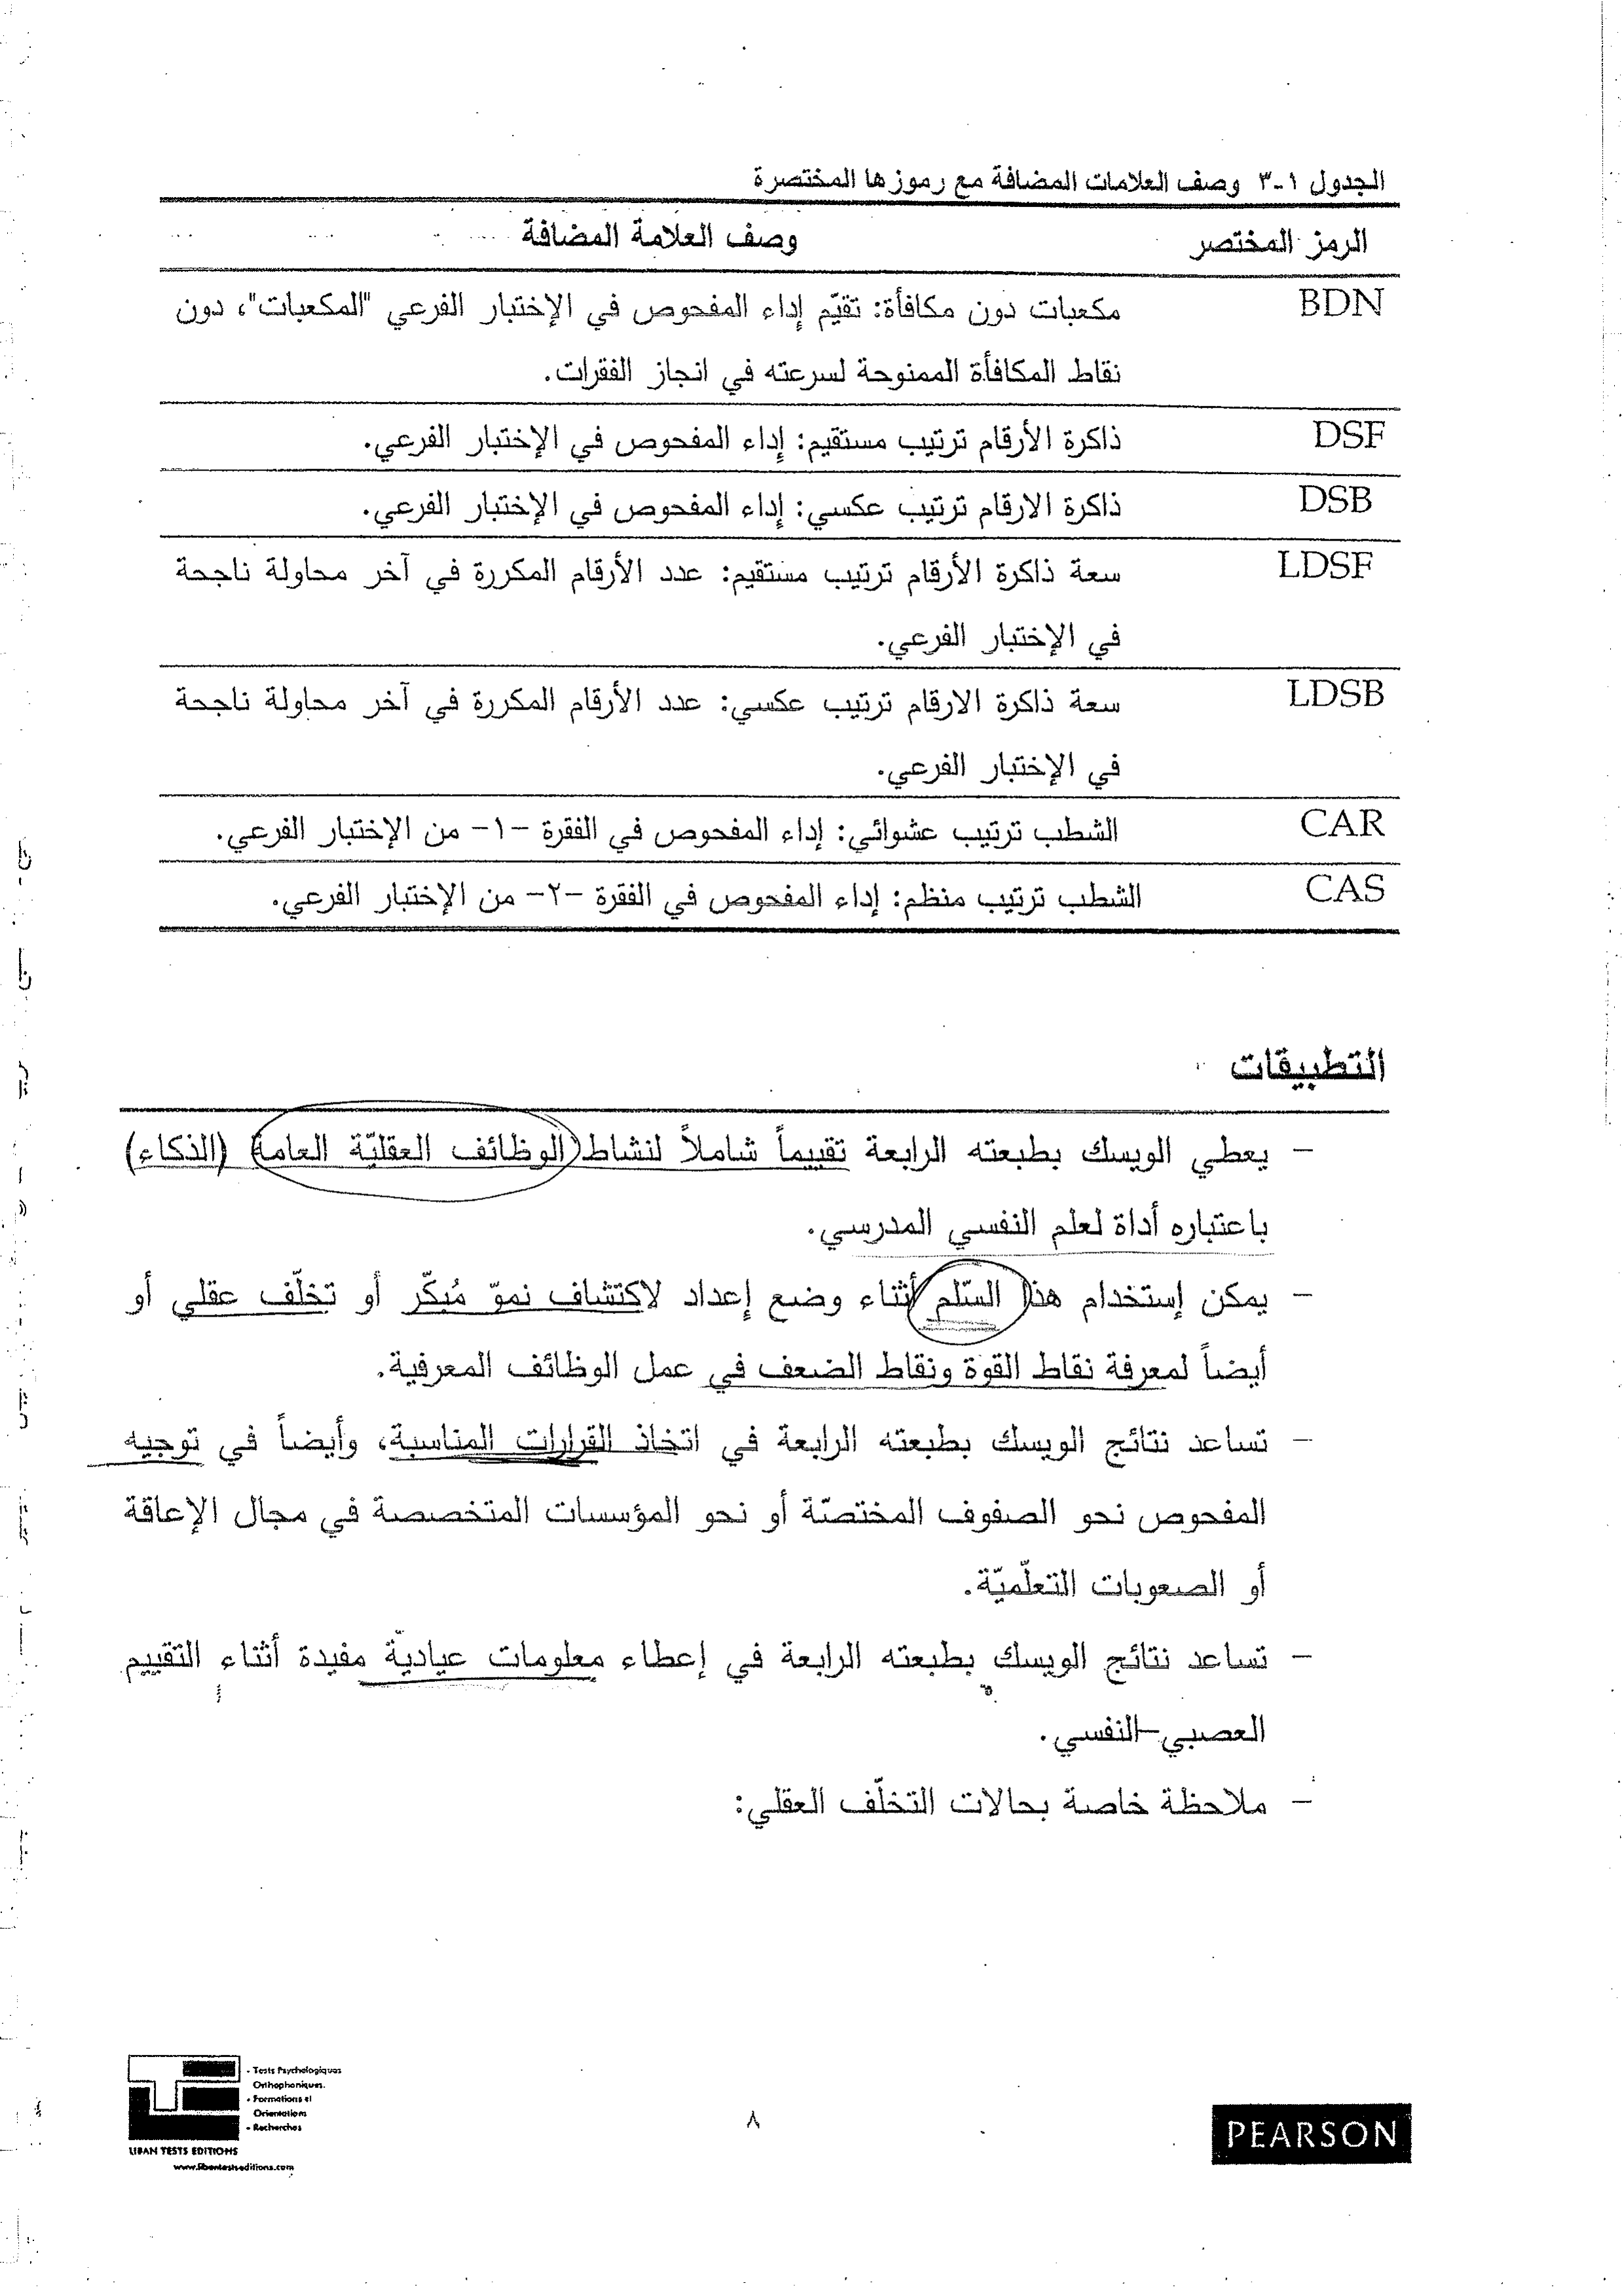 الجدول ١-٣ وصف العلامات المضافة مع رموزها المختصرة
الرمز المختصر وصف العلامة المضافة
BDN مكعبات دون مكافأة: تقيّم إداء المفحوص في الإختبار الفرعي "المكعبات"، دون
نقاط المكافأة الممنوحة لسرعته في انجاز الفقرات.
DSF ذاكرة الأرقام ترتيب مستقيم: إداء المفحوص في الإختبار الفرعي.
DSB ذاكرة الارقام ترتيب عكسي: إداء المفحوص في الإختبار الفرعي.
LDSF سعة ذاكرة الأرقام ترتيب مستقيم: عدد الأرقام المكررة في آخر محاولة ناجحة
في الإختبار الفرعي.
LDSB سعة ذاكرة الارقام ترتيب عكسي: عدد الأرقام المكررة في آخر محاولة ناجحة
في الإختبار الفرعي.
CAR الشطب ترتيب عشوائي: إداء المفحوص في الفقرة -١- من الإختبار الفرعي.
CAS الشطب ترتيب منظم: إداء المفحوص في الفقرة -٢- من الإختبار الفرعي.
التطبيقات
- يعطي الويسك بطبعته الرابعة تقييماً شاملاً لنشاط الوظائف العقليّة العامة (الذكاء)
باعتباره أداة لعلم النفسي المدرسي.
- يمكن إستخدام هذا السّلم أثناء وضع إعداد لاكتشاف نموّ مُبكّر أو تخلّف عقلي أو
أيضاً لمعرفة نقاط القوة ونقاط الضعف في عمل الوظائف المعرفية.
- تساعد نتائج الويسك بطبعته الرابعة في اتخاذ القرارات المناسبة، وأيضاً في توجيه
المفحوص نحو الصفوف المختصّة أو نحو المؤسسات المتخصصة في مجال الإعاقة
أو الصعوبات التعلّميّة.
- تساعد نتائج الويسك بطبعته الرابعة في إعطاء معلومات عيادية مفيدة أثناء التقييم
العصبي-النفسي.
- ملاحظة خاصة بحالات التخلّف العقلي:
- Tests Psychologiques
Orthophoniques.
- Formations et
Orientations
- Recherches
LIBAN TESTS EDITIONS
www.libantestseditions.com
٨
PEARSON